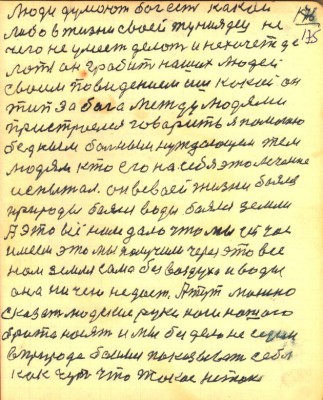 176
175
Люди думают бог есть какой
либо в жизни своей туниядец не
чего не умеет делат и нехочет де
лоть он грабит наших людей
своим поведением ищ какой он
тип за бога между людями
пристроелся говарить я помогаю
бедним болным нуждающем тем
людям кто его на себя это лечение
испытал. он вовсей жизни боялся
природы баялся воды баялся земли
А это всё нам дало что мы сейчас
имеем это мы получили через это все
нам земля сама без воздуха и воды
она ничего не дает, А тут можно
сказат людские руки ноги нашого
брата носят и мы бы дело не
вприроде боялис показыват себя
как что такое